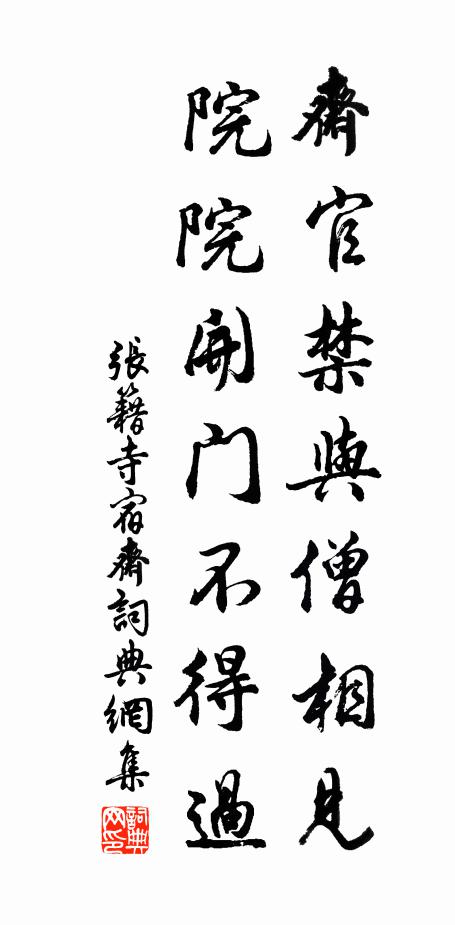 齋官禁與僧相見
院院開门不得過
張籍寺宿齋詞典網集
詞典网印